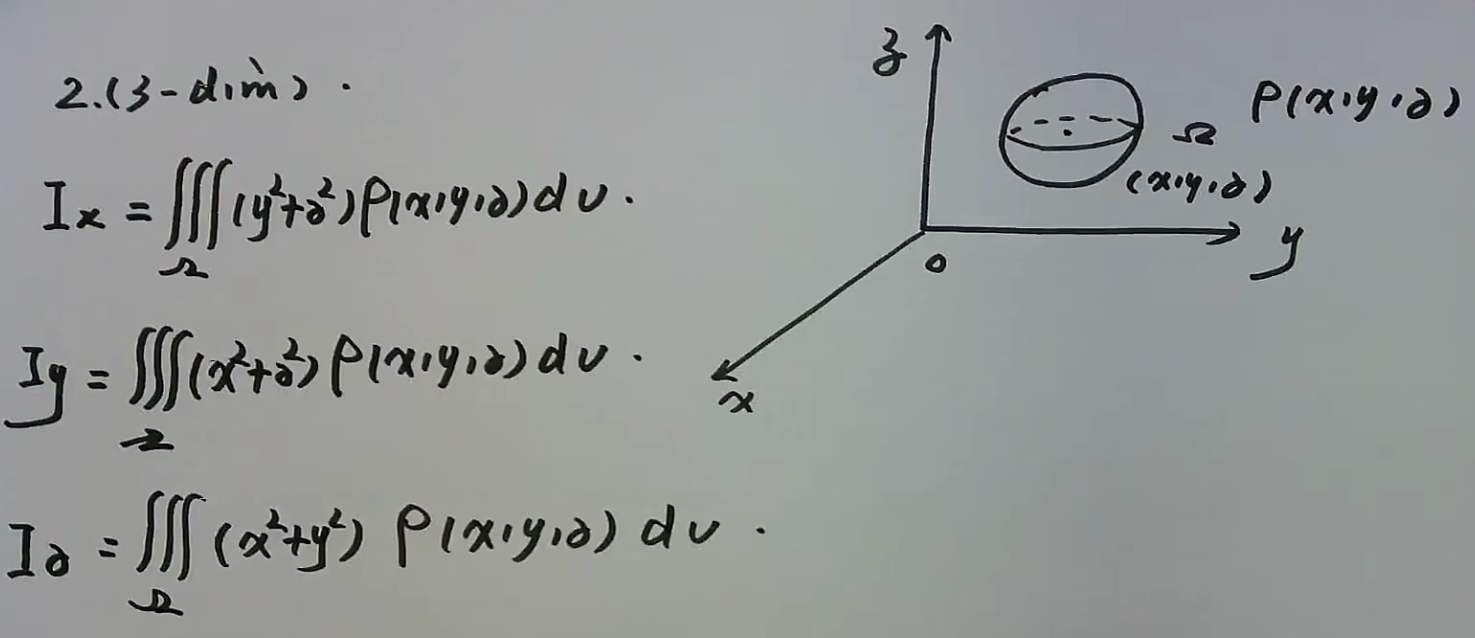 2.(3-dim).
Ix = ∭Ω (y²+z²)ρ(x,y,z)dv.
Iy = ∭Ω (x²+z²)ρ(x,y,z)dv.
Iz = ∭Ω (x²+y²) ρ(x,y,z) dv.
z
Ω ρ(x,y,z)
(x,y,z)
0
y
x